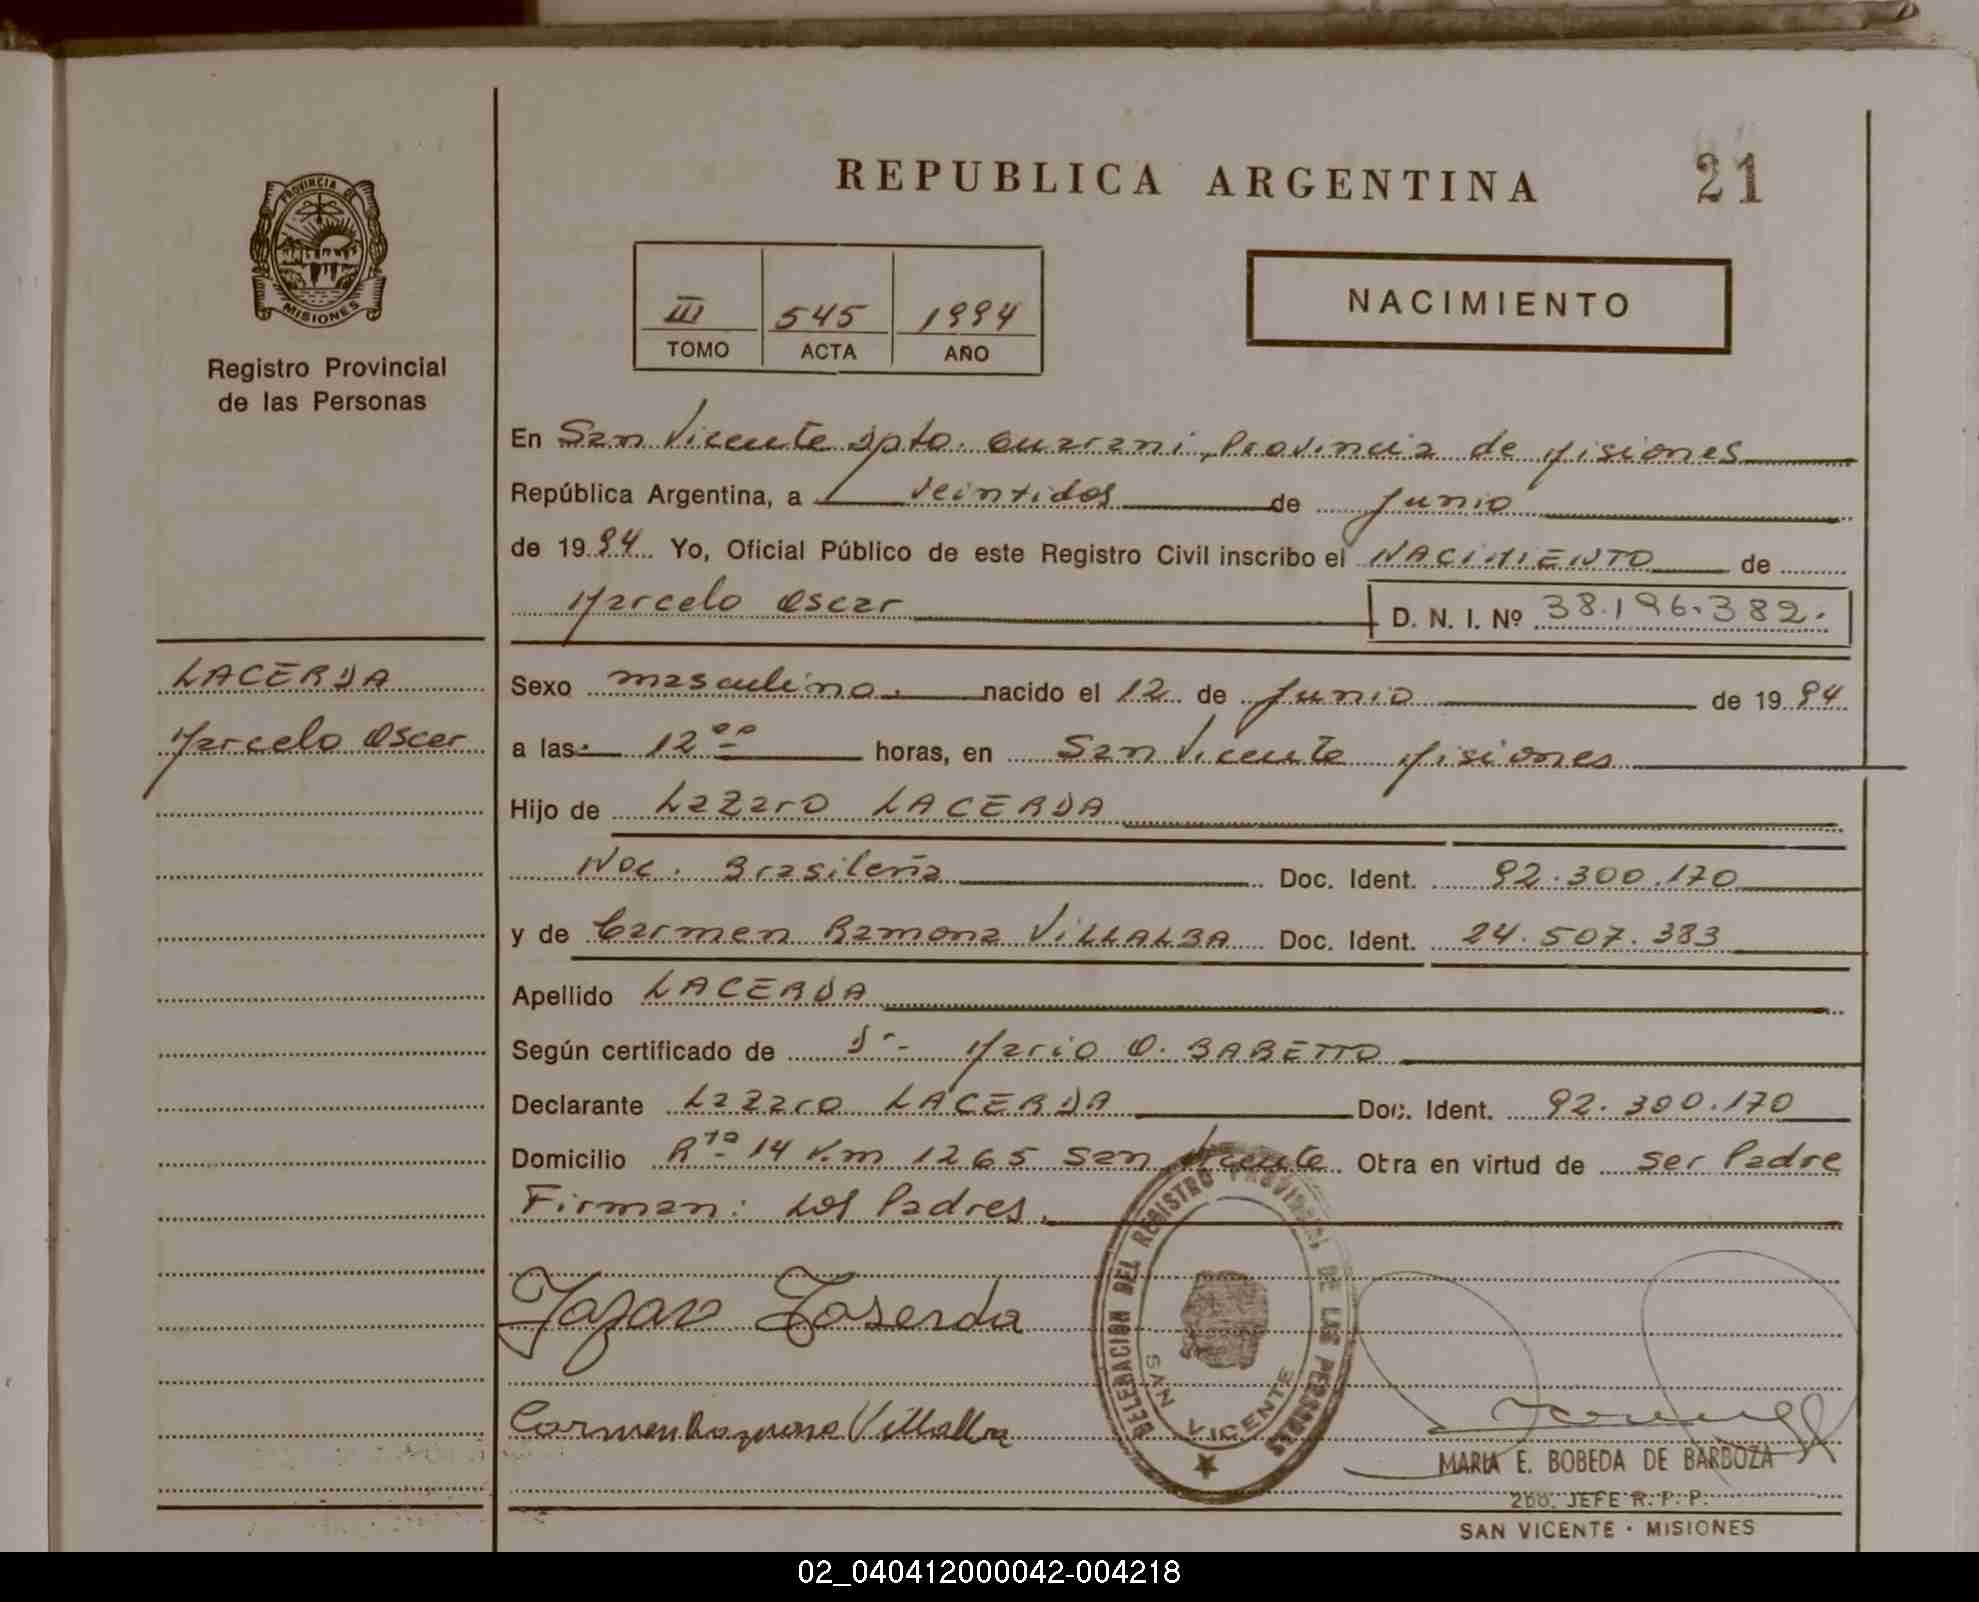 REPUBLICA ARGENTINA
21
PROVINCIA DE
MISIONES
Registro Provincial
de las Personas
III 545 1994
TOMO ACTA AÑO
NACIMIENTO
En San Vicente Dpto. Guarani, Provincia de Misiones
República Argentina, a veintidos de Junio
de 1994 Yo, Oficial Público de este Registro Civil inscribo el NACIMIENTO de
Marcelo Oscar D. N. I. Nº 38.196.382.
LACERDA
Marcelo Oscar
Sexo masculino. nacido el 12 de Junio de 1994
a las 12 ºº horas, en San Vicente Misiones
Hijo de Lazaro LACERDA
Nac. Brasileña Doc. Ident. 92.300.170
y de Carmen Ramona VILLALBA Doc. Ident. 24.507.383
Apellido LACERDA
Según certificado de Dr. Mario O. BARETTO
Declarante Lazaro LACERDA Doc. Ident. 92.300.170
Domicilio Rta 14 Km 1265 San Vicente Otra en virtud de ser Padre
Firman: Los Padres.
DELEGACION DEL REGISTRO PROVINCIAL DE LAS PERSONAS
SAN VICENTE
Lazaro Laserda
Carmen Ramona Villalba
MARIA E. BOBEDA DE BARBOZA
2do. JEFE R. P. P.
SAN VICENTE - MISIONES
02_040412000042-004218